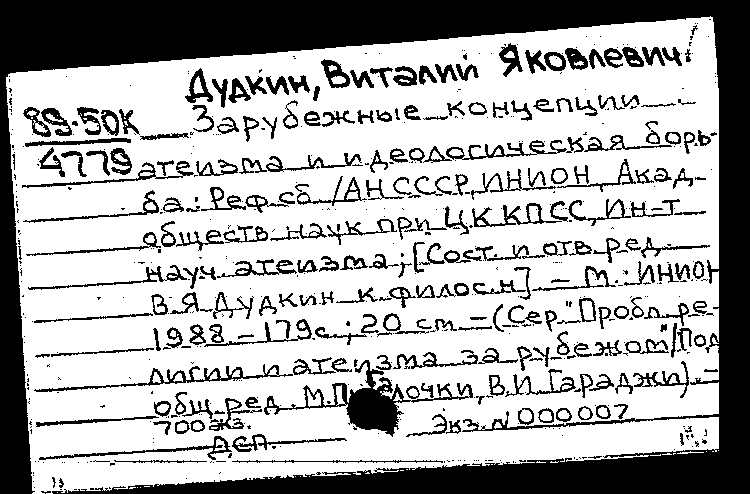 Дудкин, Виталий Яковлевич.
89-50К Зарубежные концепции
4779 атеизма и идеологическая борь-
ба: Реф. сб. / АН СССР, ИНИОН, Акад.
обществ. наук при ЦК КПСС, Ин-т
науч. атеизма; [Сост. и отв. ред.
В.Я. Дудкин к.филос.н]. - М.: ИНИОН
1988 - 179с.; 20 см - (Сер. "Пробл. ре-
лигии и атеизма за рубежом" / Под
общ. ред. М.П. В.И. Гараджи). -
700 экз. Экз. N 000007
ДСП.